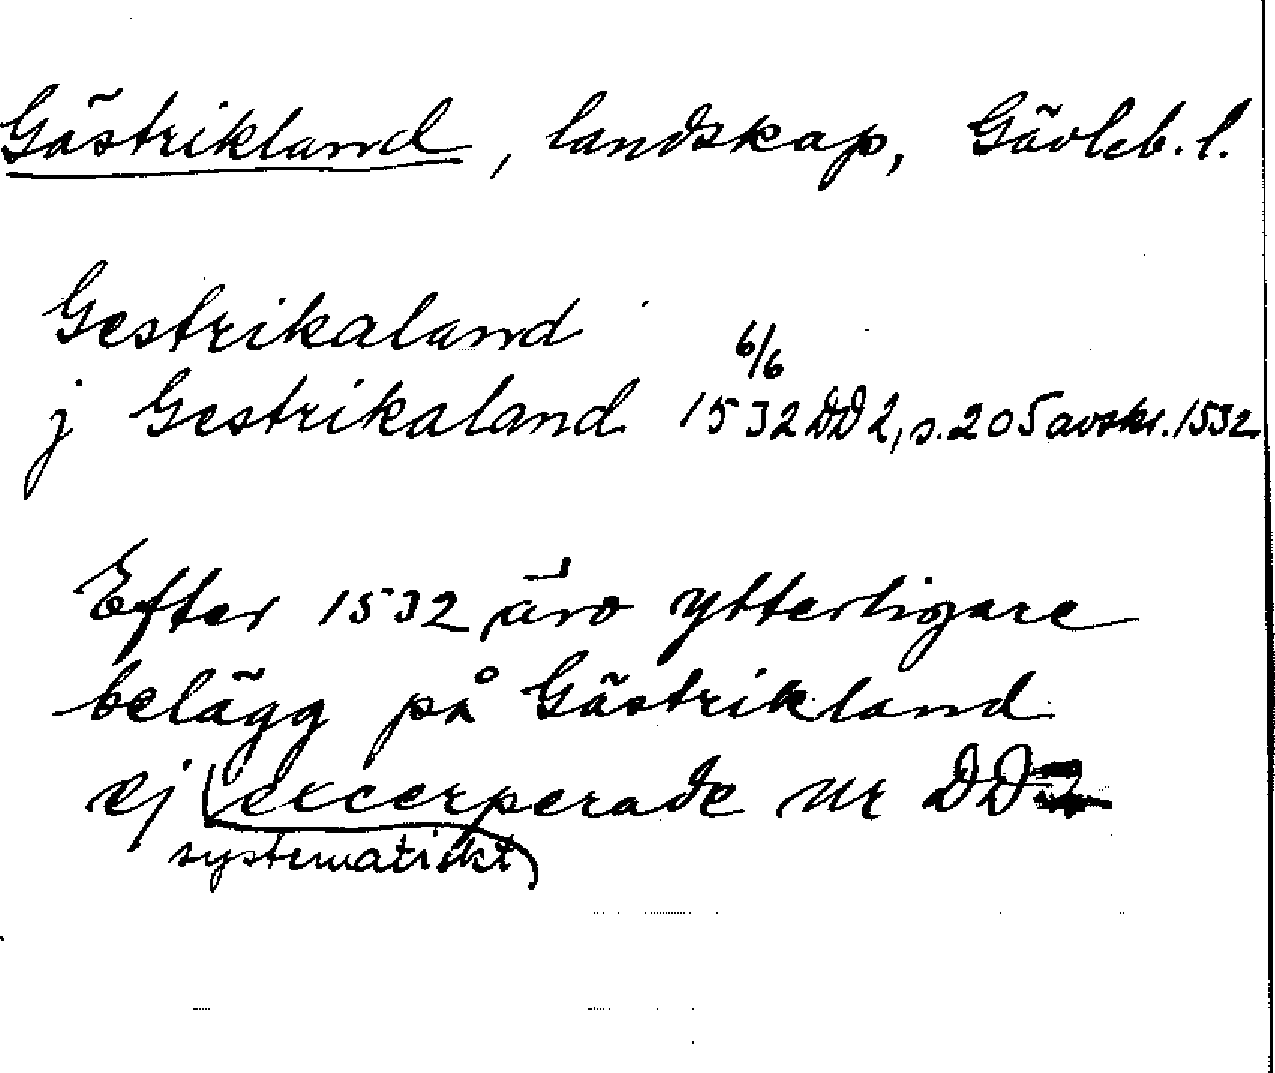 Gästrikland, landskap, Gävleb. l.
Gestrikaland
j Gestrikaland 6/6 1532 DD 2, s. 205 avskr. 1532
Efter 1532 äro ytterligare
belägg på Gästrikland
ej excerperade ur DD
systematiskt